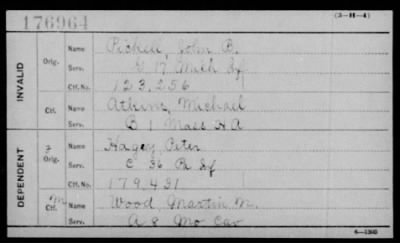 176964
(3-H-4)
INVALID
Orig.
Name Pickell, John B.
Serv. G 17 Mich Inf
Ctf. No. 123,256
Ctf. Name Atkins, Michael
Serv. B 1 Mass H A
DEPENDENT
Orig.
Name Hagey, Peter
Serv. C 36 Pa Inf
Ctf. No. 179,431
Ctf. Name Wood, Martin M.
Serv. A 8 Mo Cav